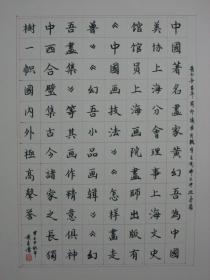 中國著名畫家黄幻吾為中國
美協上海分會理事上海文史
館館員上海畫院畫師出版有
《中國畫技法》《怎樣畫走
獸》《幻吾小品畫輯》《幻
吾畫集》等其畫作精意俱神
中西合璧集古今諸家之長獨
樹一幟國内外極高聲譽